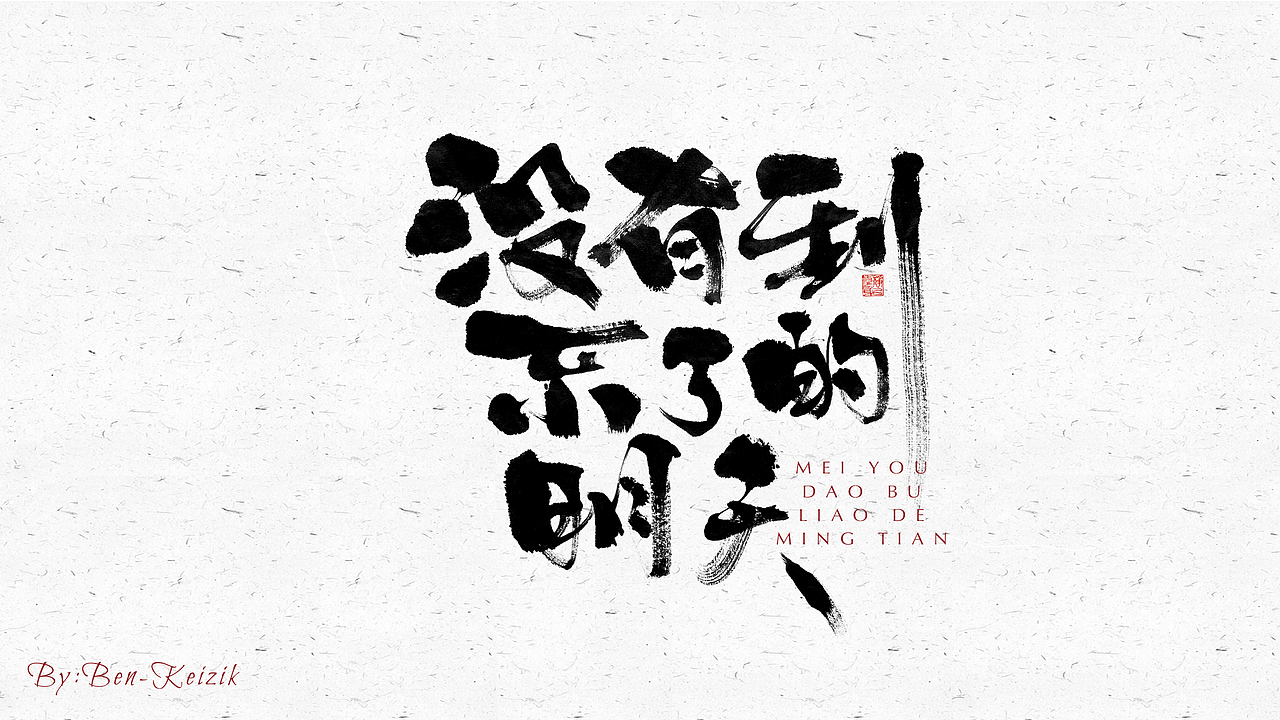 没有到
不了的
明天
MEI YOU
DAO BU
LIAO DE
MING TIAN
By:Ben-Keizik